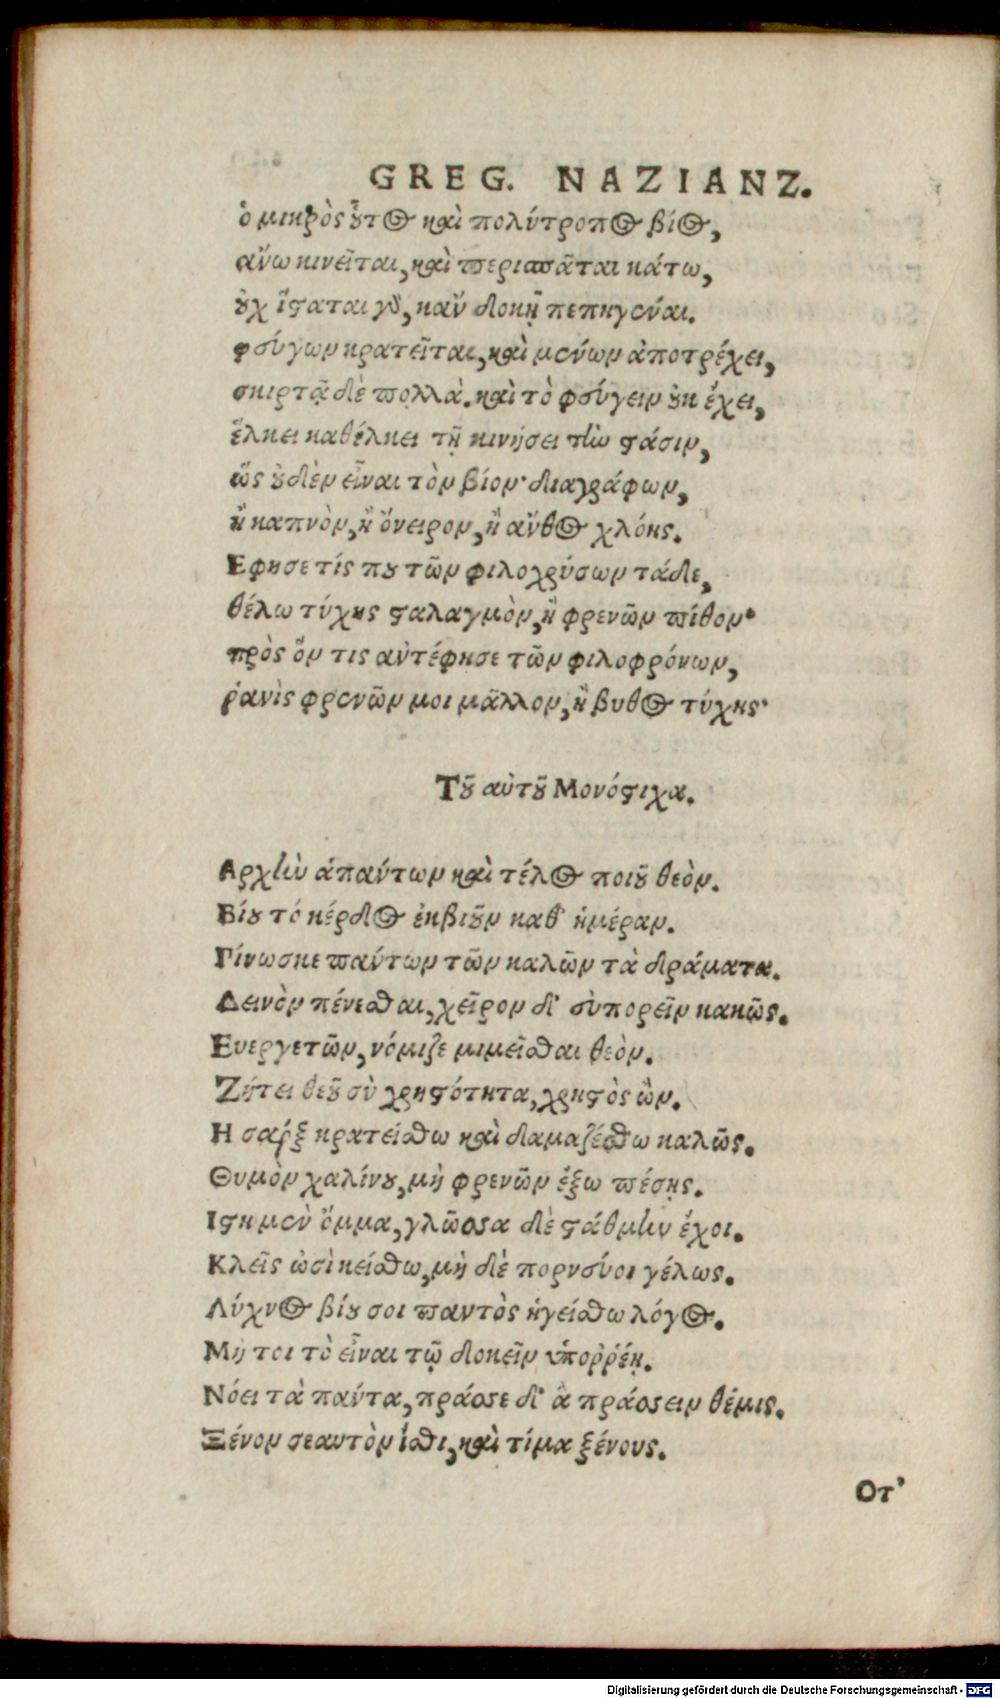 GREG. NAZIANZ.
ὁ μικρὸς οὗτος καὶ πολύτροπος βίος,
ἄνω κινεῖται, καὶ περισπᾶται κάτω,
οὐχ ἵσταται γὰρ, κἂν δοκῇ πεπηγέναι.
φεύγων κρατεῖται, καὶ μένων ἀποτρέχει,
σκιρτᾷ δὲ πολλὰ. καὶ τὸ φεύγειν οὐκ ἔχει,
ἕλκει καθέλκει τῇ κινήσει τὴν στάσιν,
ὡς οὐδὲν εἶναι τὸν βίον· διαγράφων,
ἢ καπνὸν, ἢ ὄνειρον, ἢ ἄνθος χλόης.
Εφησε τίς που τῶν φιλοχρύσων τάδε,
θέλω τύχης σταλαγμὸν, ἢ φρενῶν πίθον·
πρὸς ὅν τις αὐτέφησε τῶν φιλοφρόνων,
ῥανὶς φρενῶν μοι μᾶλλον, ἢ βυθος τύχης·
Τοῦ αὐτοῦ Μονόστιχα.
Αρχὴν ἁπάντων καὶ τέλος ποιοῦ θεὸν.
Βίου τό κέρδος ἐκβιοῦν καθ' ἡμέραν.
Γίνωσκε πάντων τῶν καλῶν τὰ δράματα.
Δεινὸν πένεσθαι, χεῖρον δ' εὐπορεῖν κακῶς.
Ευεργετῶν, νόμιζε μιμεῖσθαι θεὸν.
Ζήτει θεοῦ σὺ χρηστότητα, χρηστὸς ὢν.
Η σαρξ κρατείσθω καὶ δαμαζέσθω καλῶς.
Θυμὸν χαλίνου, μὴ φρενῶν ἔξω πέσῃς.
Ιστη μὲν ὄμμα, γλῶσσα δὲ στάθμην ἔχοι.
Κλεῖς ὠσὶ κείσθω, μὴ δὲ πορνεύοι γέλως.
Λύχνος βίου σοι παντὸς ἡγείσθω λόγος.
Μή τοι τὸ εἶναι τῷ δοκεῖν ὑποῤῥέῃ.
Νόει τὰ πάντα, πράσσε δ' ἃ πράσσειν θέμις.
Ξένον σεαυτὸν ἴσθι, καὶ τίμα ξένους.
Οτ'
Digitalisierung gefördert durch die Deutsche Forschungsgemeinschaft - DFG